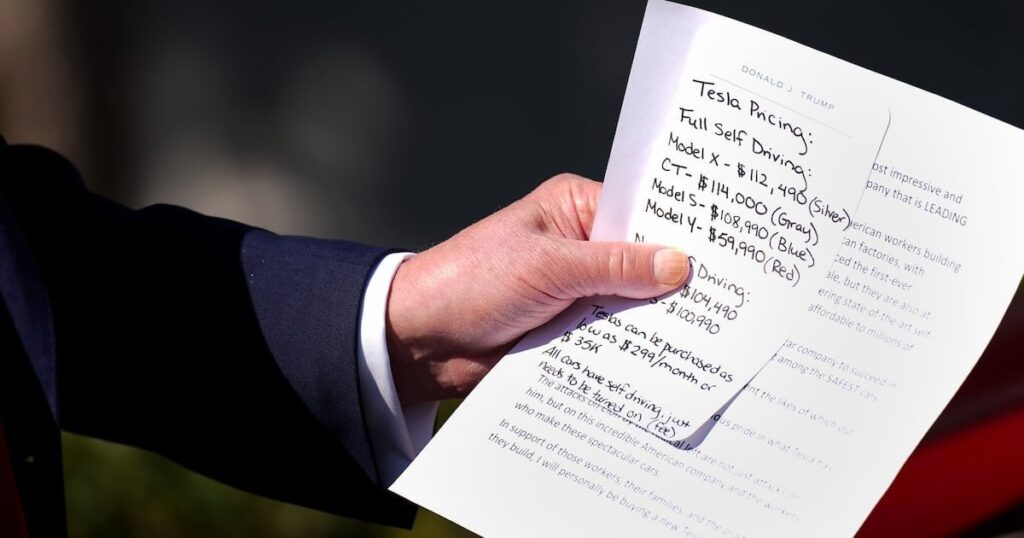 DONALD J. TRUMP
Tesla Pricing:
Full Self Driving:
Model X - $112,490 (Silver)
CT- $114,000 (Gray)
Model S- $108,990 (Blue)
Model Y- $59,990 (Red)
Driving:
$104,490
- $100,990
Teslas can be purchased as
low as $299/month or
$35K
All cars have self driving, just
needs to be turned on (fee)
ost impressive and
pany that is LEADING
erican workers building
can factories, with
ced the first-ever
ale, but they are also at
ering state-of-the-art self
affordable to millions of
ar company to succeed in
among the SAFEST cars
ent the likes of which our
ous pride in what Tesla has
The attacks on left are not just attacks on
him, but on this incredible American company and the workers
who make these spectacular cars.
In support of those workers, their families, and the
they build, I will personally be buying a new Tesla